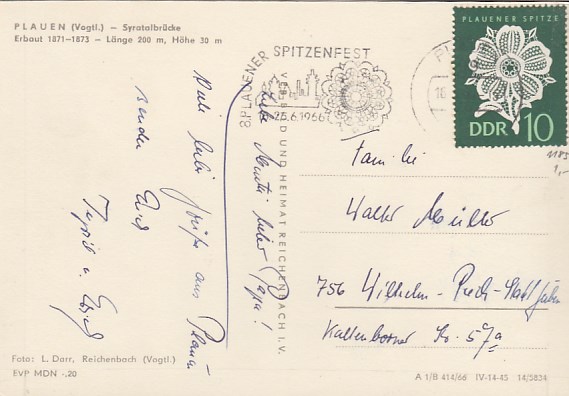 PLAUEN (Vogtl.) – Syratalbrücke
Erbaut 1871–1873 – Länge 200 m, Höhe 30 m
8. PLAUENER SPITZENFEST
25.6.1966
PLAUENER SPITZE
DDR 10
1185
1,-
Liebe Mutti, lieber Papa!
Viele liebe Grüße aus Plauen
senden Euch
Familie
Walter Müller
756 Wilhelm-Pieck-Stadt Guben
Kaltenborner Str. 57a
VERLAG BILD UND HEIMAT REICHENBACH I. V.
Foto: L. Darr, Reichenbach (Vogtl.)
EVP MDN -.20
A 1/B 414/66 IV-14-45 14/5834